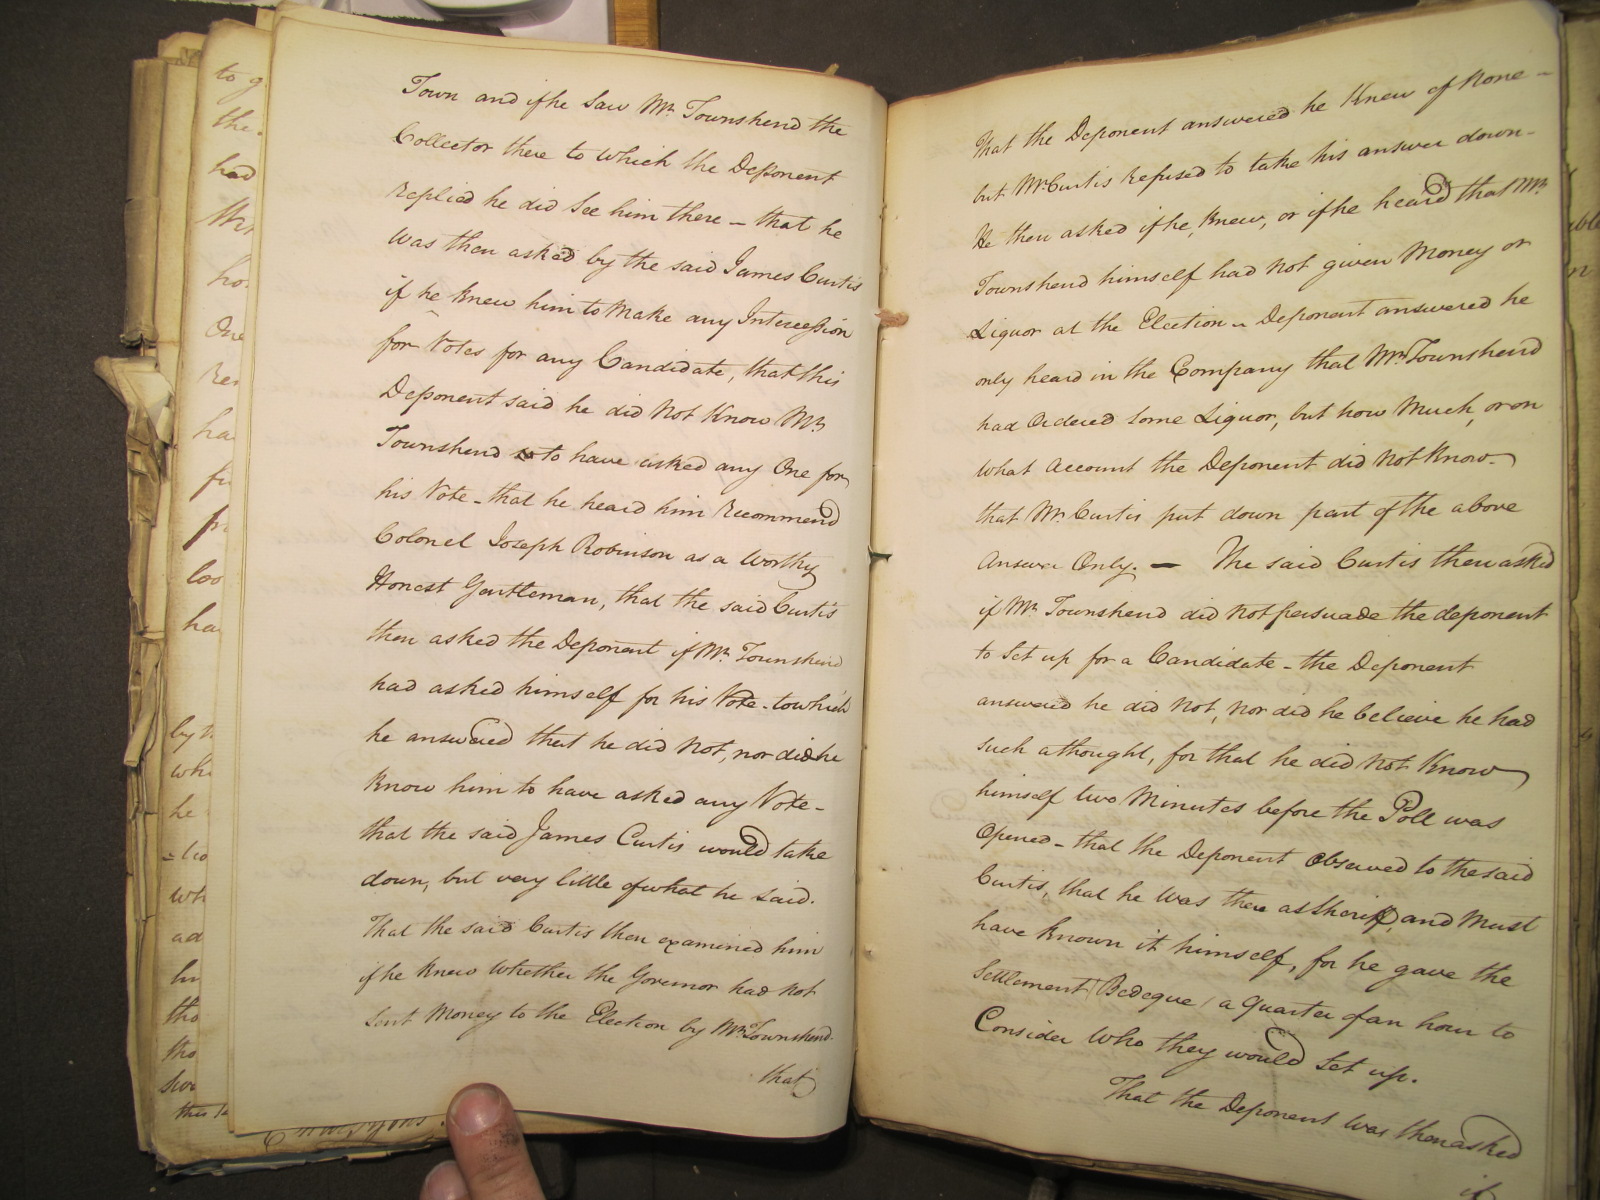 Town and if he Saw Mr. Townshend the
Collector there to which the Deponent
replied he did See him there – that he
was then asked by the said James Curtis
if he knew him to Make any Intercession
for Votes for any Candidate, that this
Deponent said he did Not Know Mr.
Townshend to have asked any One for
his Vote – that he heard him Recommend
Colonel Joseph Robinson as a Worthy
Honest Gentleman, that the said Curtis
then asked the Deponent if Mr. Townshend
had asked himself for his Vote – to which
he answered that he did Not, nor did he
Know him to have asked any Vote –
that the said James Curtis would take
down, but very little of what he said.
That the said Curtis then examined him
if he knew Whether the Governor had Not
Sent Money to the Election by Mr. Townshend.
that
That the Deponent answered he Knew of None –
but Mr. Curtis refused to take his answer down –
He then asked if he, Knew, or if he heard that Mr.
Townshend himself had Not given Money or
Liquor at the Election – Deponent answered he
only heard in the Company that Mr. Townshend
had Ordered Some Liquor, but how Much, or on
What Account the Deponent did Not Know –
that Mr. Curtis put down part of the above
Answer Only. — The said Curtis then asked
if Mr. Townshend did Not persuade the deponent
to Set up for a Candidate – the Deponent
answered he did Not, Nor did he believe he had
such a thought, for that he did Not Know
himself two Minutes before the Poll was
Opened – that the Deponent Observed to the said
Curtis, that he was there as Sheriff, and Must
have Known it himself, for he gave the
Settlement (Bedeque) a Quarter of an hour to
Consider Who they would Set up.
That the Deponent was then asked
if
to g
the
had
ho
One
ha
loo
ha
by
whi
he
wh
ad
tho
tho